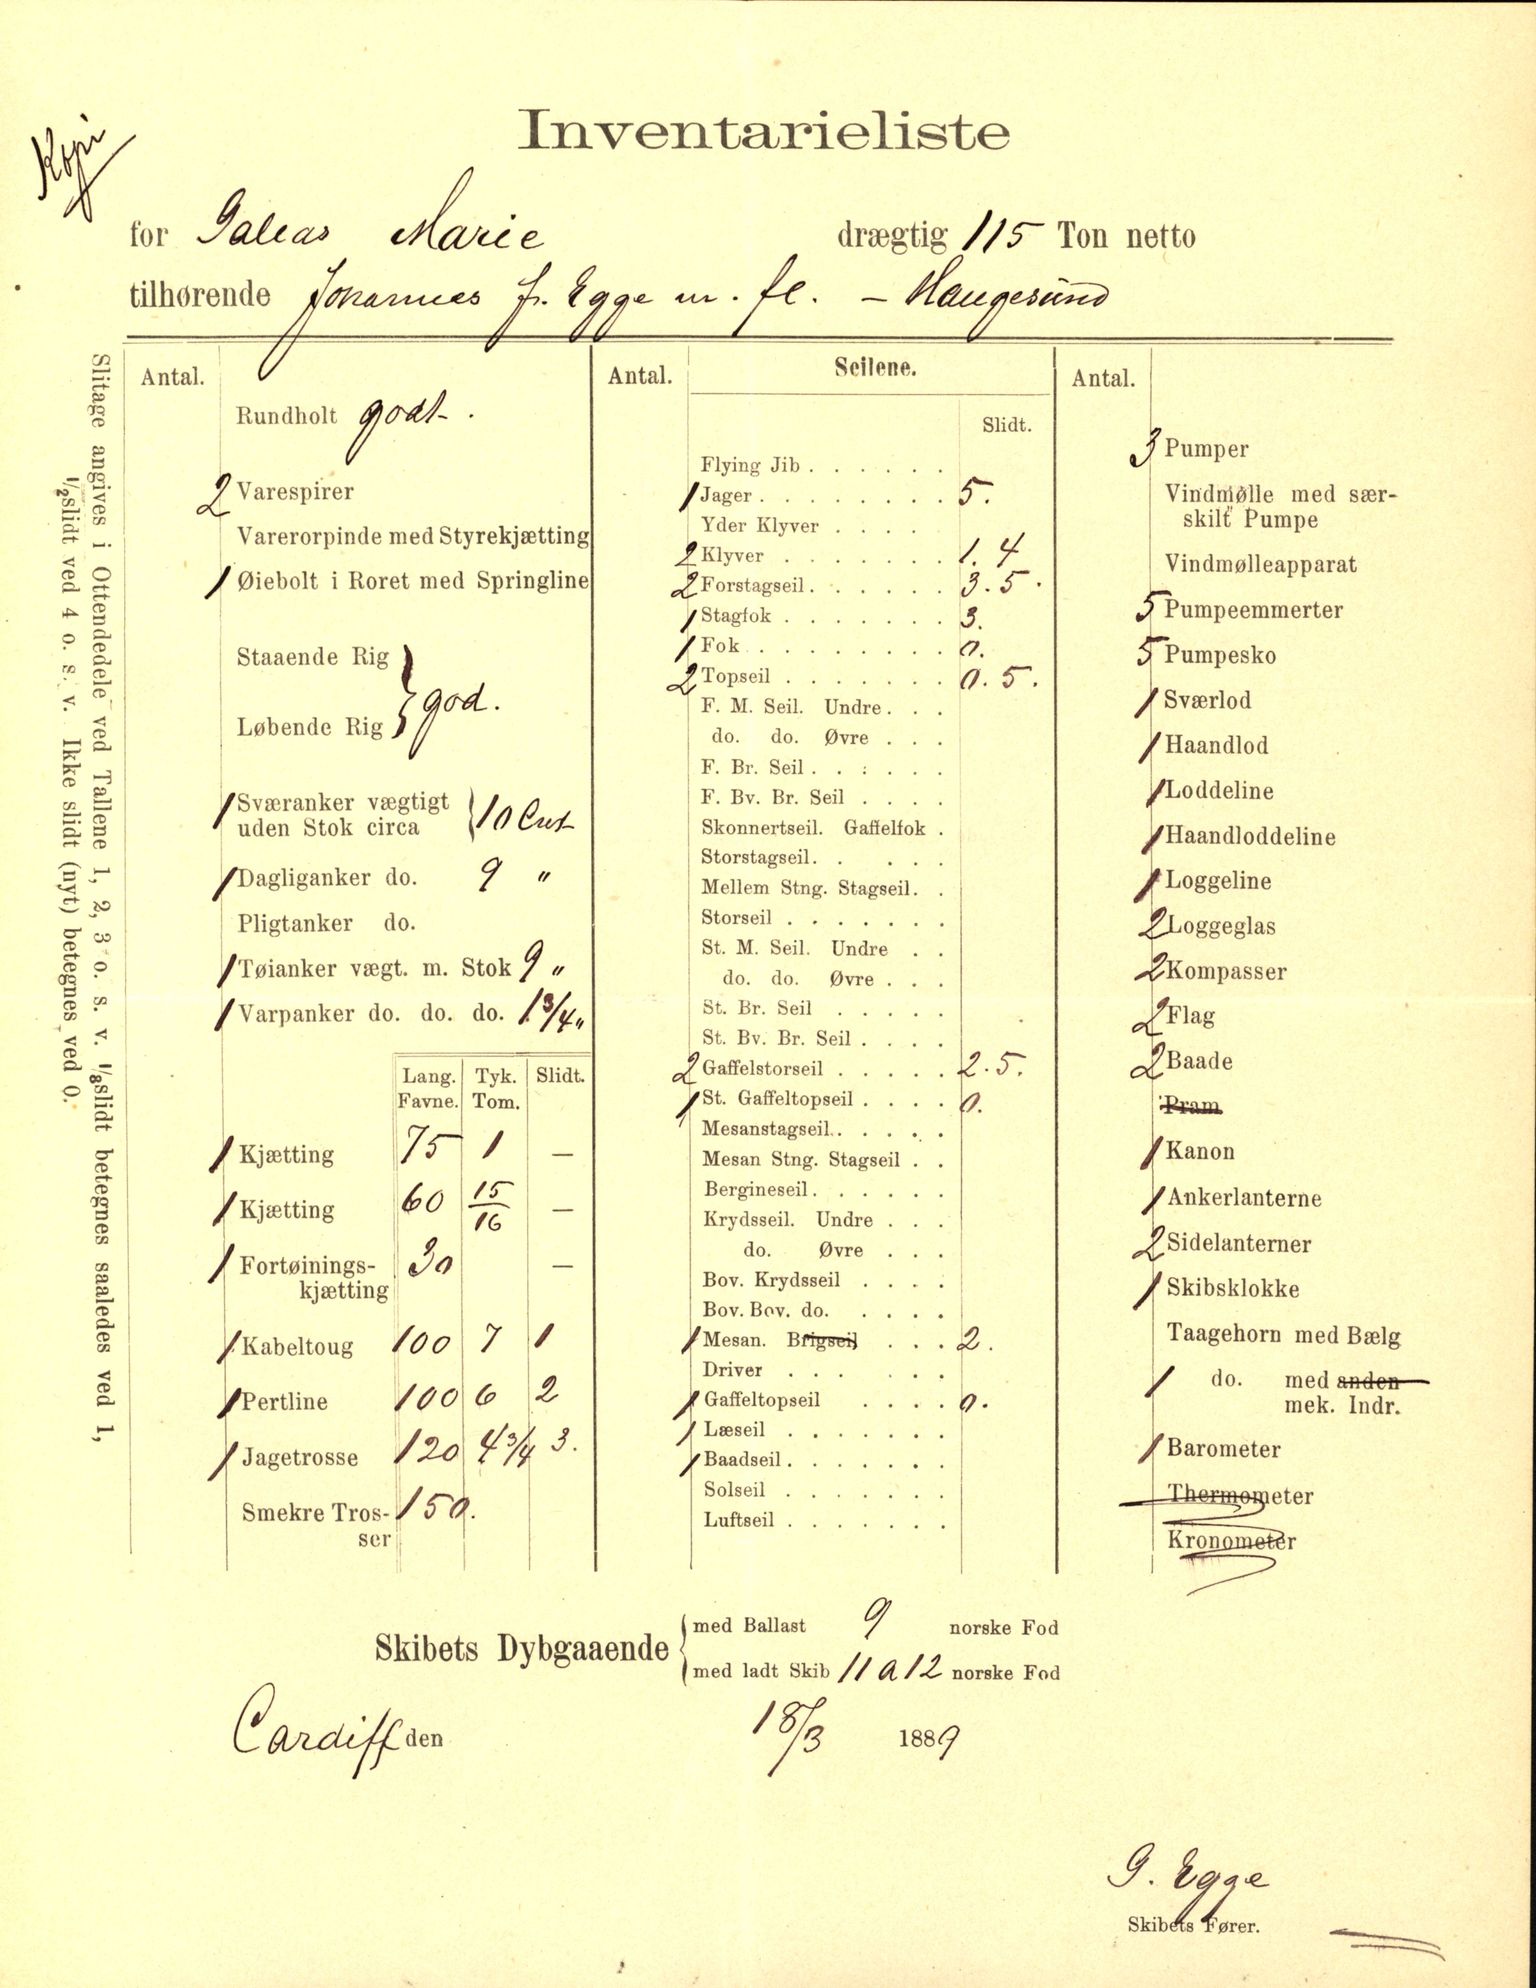 Kopi
Inventarieliste
for Galeas Marie drægtig 115 Ton netto
tilhørende Johannes J. Egge m. fl. – Haugesund
Slitage angives i Ottendedele ved Tallene 1, 2, 3 o. s. v. 1/8 slidt betegnes saaledes ved 1,
1/2 slidt ved 4 o. s. v. Ikke slidt (nyt) betegnes ved 0.
Antal.
Rundholt godt.
2 Varespirer
Varerorpinde med Styrekjætting
1 Øiebolt i Roret med Springline
Staaende Rig
Løbende Rig } god.
1 Sværanker vægtigt
uden Stok circa } 10 Cwt
1 Dagliganker do. 9 "
Pligtanker do.
1 Tøianker vægt. m. Stok 9 "
1 Varpanker do. do. do. 1 3/4 "
Lang. Tyk. Slidt.
Favne. Tom.
1 Kjætting 75 1 —
1 Kjætting 60 15/16 —
1 Fortøinings- 30 —
kjætting
1 Kabeltoug 100 7 1
1 Pertline 100 6 2
1 Jagetrosse 120 4 3/4 3.
Smekre Tros- 150.
ser
Antal. Seilene.
Slidt.
Flying Jib . . . . . .
1 Jager . . . . . . . . 5.
Yder Klyver . . . .
2 Klyver . . . . . . . 1. 4
2 Forstagseil . . . . . . 3. 5.
1 Stagfok . . . . . . . 3.
1 Fok . . . . . . . . 0.
2 Topseil . . . . . . . 0. 5.
F. M. Seil. Undre . . .
do. do. Øvre . . .
F. Br. Seil . . . . . .
F. Bv. Br. Seil . . . .
Skonnertseil. Gaffelfok .
Storstagseil . . . . .
Mellem Stng. Stagseil . .
Storseil . . . . . . .
St. M. Seil. Undre . .
do. do. Øvre . . .
St. Br. Seil . . . . .
St. Bv. Br. Seil . . . .
2 Gaffelstorseil . . . . . 2. 5.
1 St. Gaffeltopseil . . . . 0.
Mesanstagseil . . . . .
Mesan Stng. Stagseil . .
Bergineseil . . . . . .
Krydsseil. Undre . . .
do. Øvre . . .
Bov. Krydsseil . . . .
Bov. Bov. do. . . . .
1 Mesan. Brigseil . . . 2.
Driver . . . . . .
1 Gaffeltopseil . . . . 0.
1 Læseil . . . . . . .
1 Baadseil . . . . . . .
Solseil . . . . . . .
Luftseil . . . . . . .
Antal.
3 Pumper
Vindmølle med sær-
skilt Pumpe
Vindmølleapparat
5 Pumpeemmerter
5 Pumpesko
1 Sværlod
1 Haandlod
1 Loddeline
1 Haandloddeline
1 Loggeline
2 Loggeglas
2 Kompasser
2 Flag
2 Baade
Pram
1 Kanon
1 Ankerlanterne
2 Sidelanterner
1 Skibsklokke
Taagehorn med Bælg
1 do. med anden
mek. Indr.
1 Barometer
Thermometer
Kronometer
Skibets Dybgaaende { med Ballast 9 norske Fod
med ladt Skib 11 a 12 norske Fod
Cardiff den 18/3 1889
G. Egge
Skibets Fører.